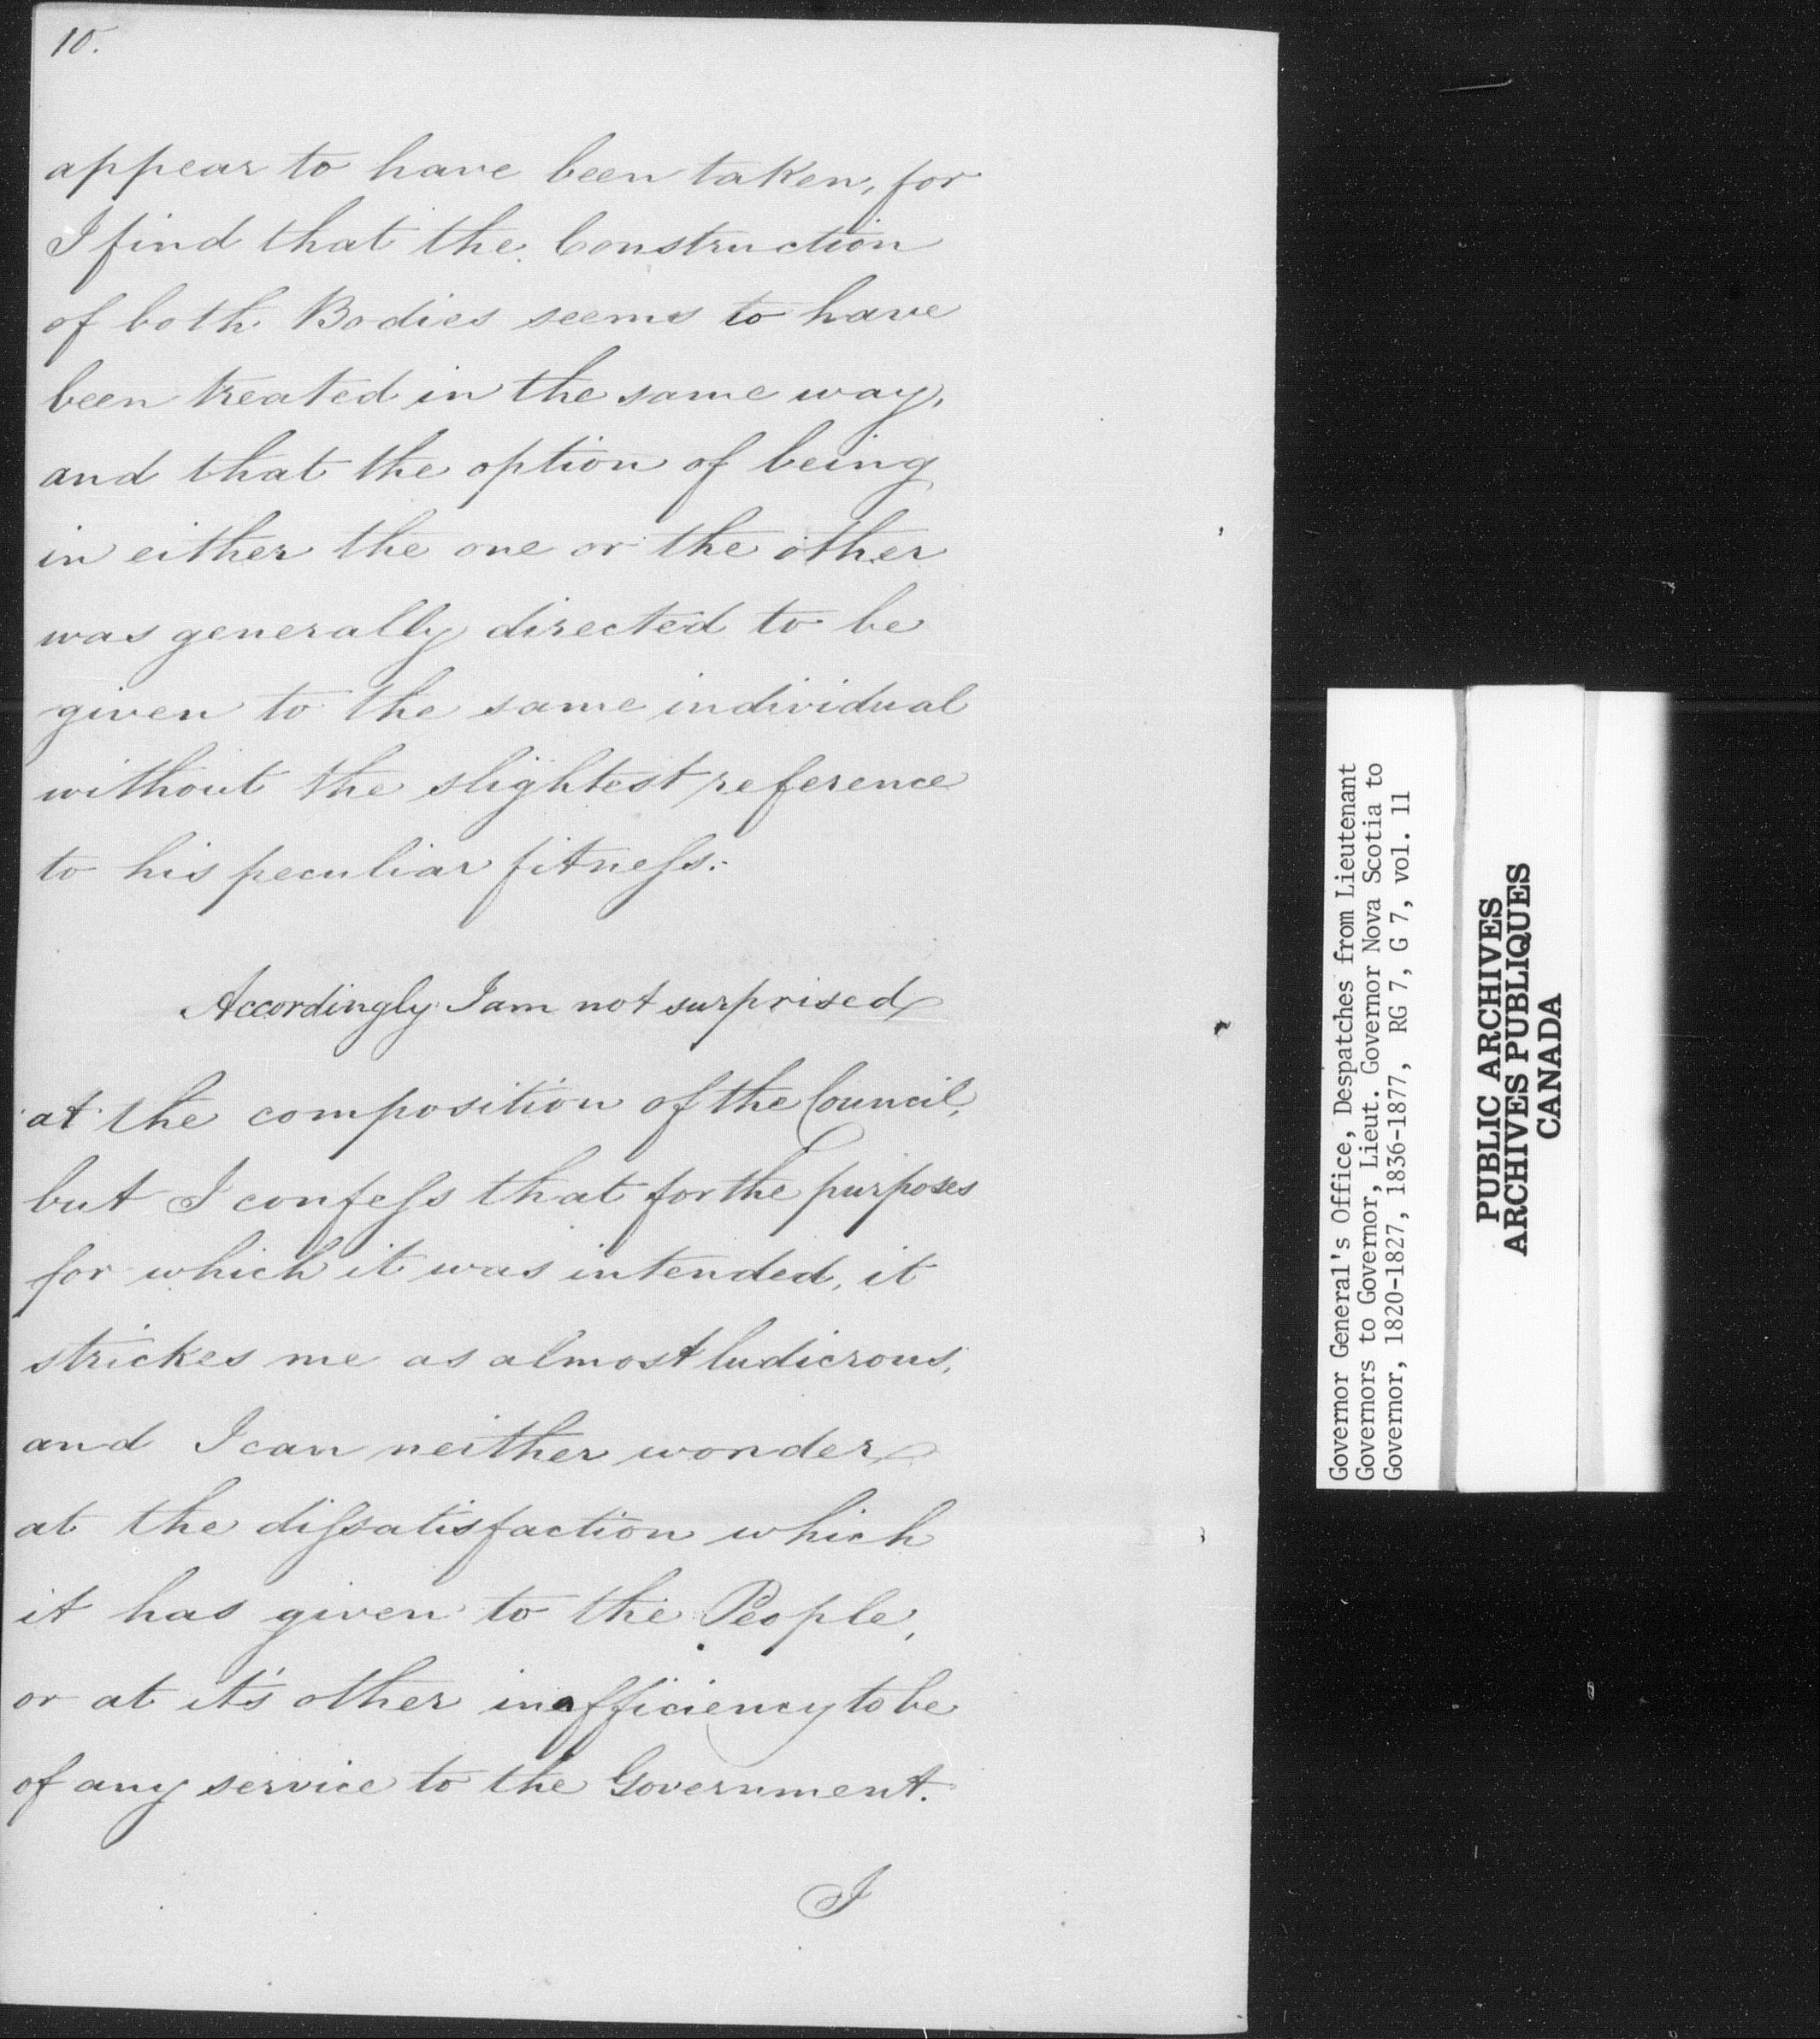 10.
appear to have been taken, for
I find that the Construction
of both Bodies seems to have
been treated in the same way,
and that the option of being
in either the one or the other
was generally directed to be
given to the same individual
without the slightest reference
to his peculiar fitneſs.
Accordingly I am not surprised
at the composition of the Council,
but I confeſs that for the purposes
for which it was intended, it
strickes me as almost ludicrous,
and I can neither wonder
at the diſsatisfaction which
it has given to the People,
or at it's other inefficiency to be
of any service to the Government.
I
Governor General's Office, Despatches from Lieutenant
Governors to Governor, Lieut. Governor Nova Scotia to
Governor, 1820-1827, 1836-1877, RG 7, G 7, vol. 11
PUBLIC ARCHIVES
ARCHIVES PUBLIQUES
CANADA